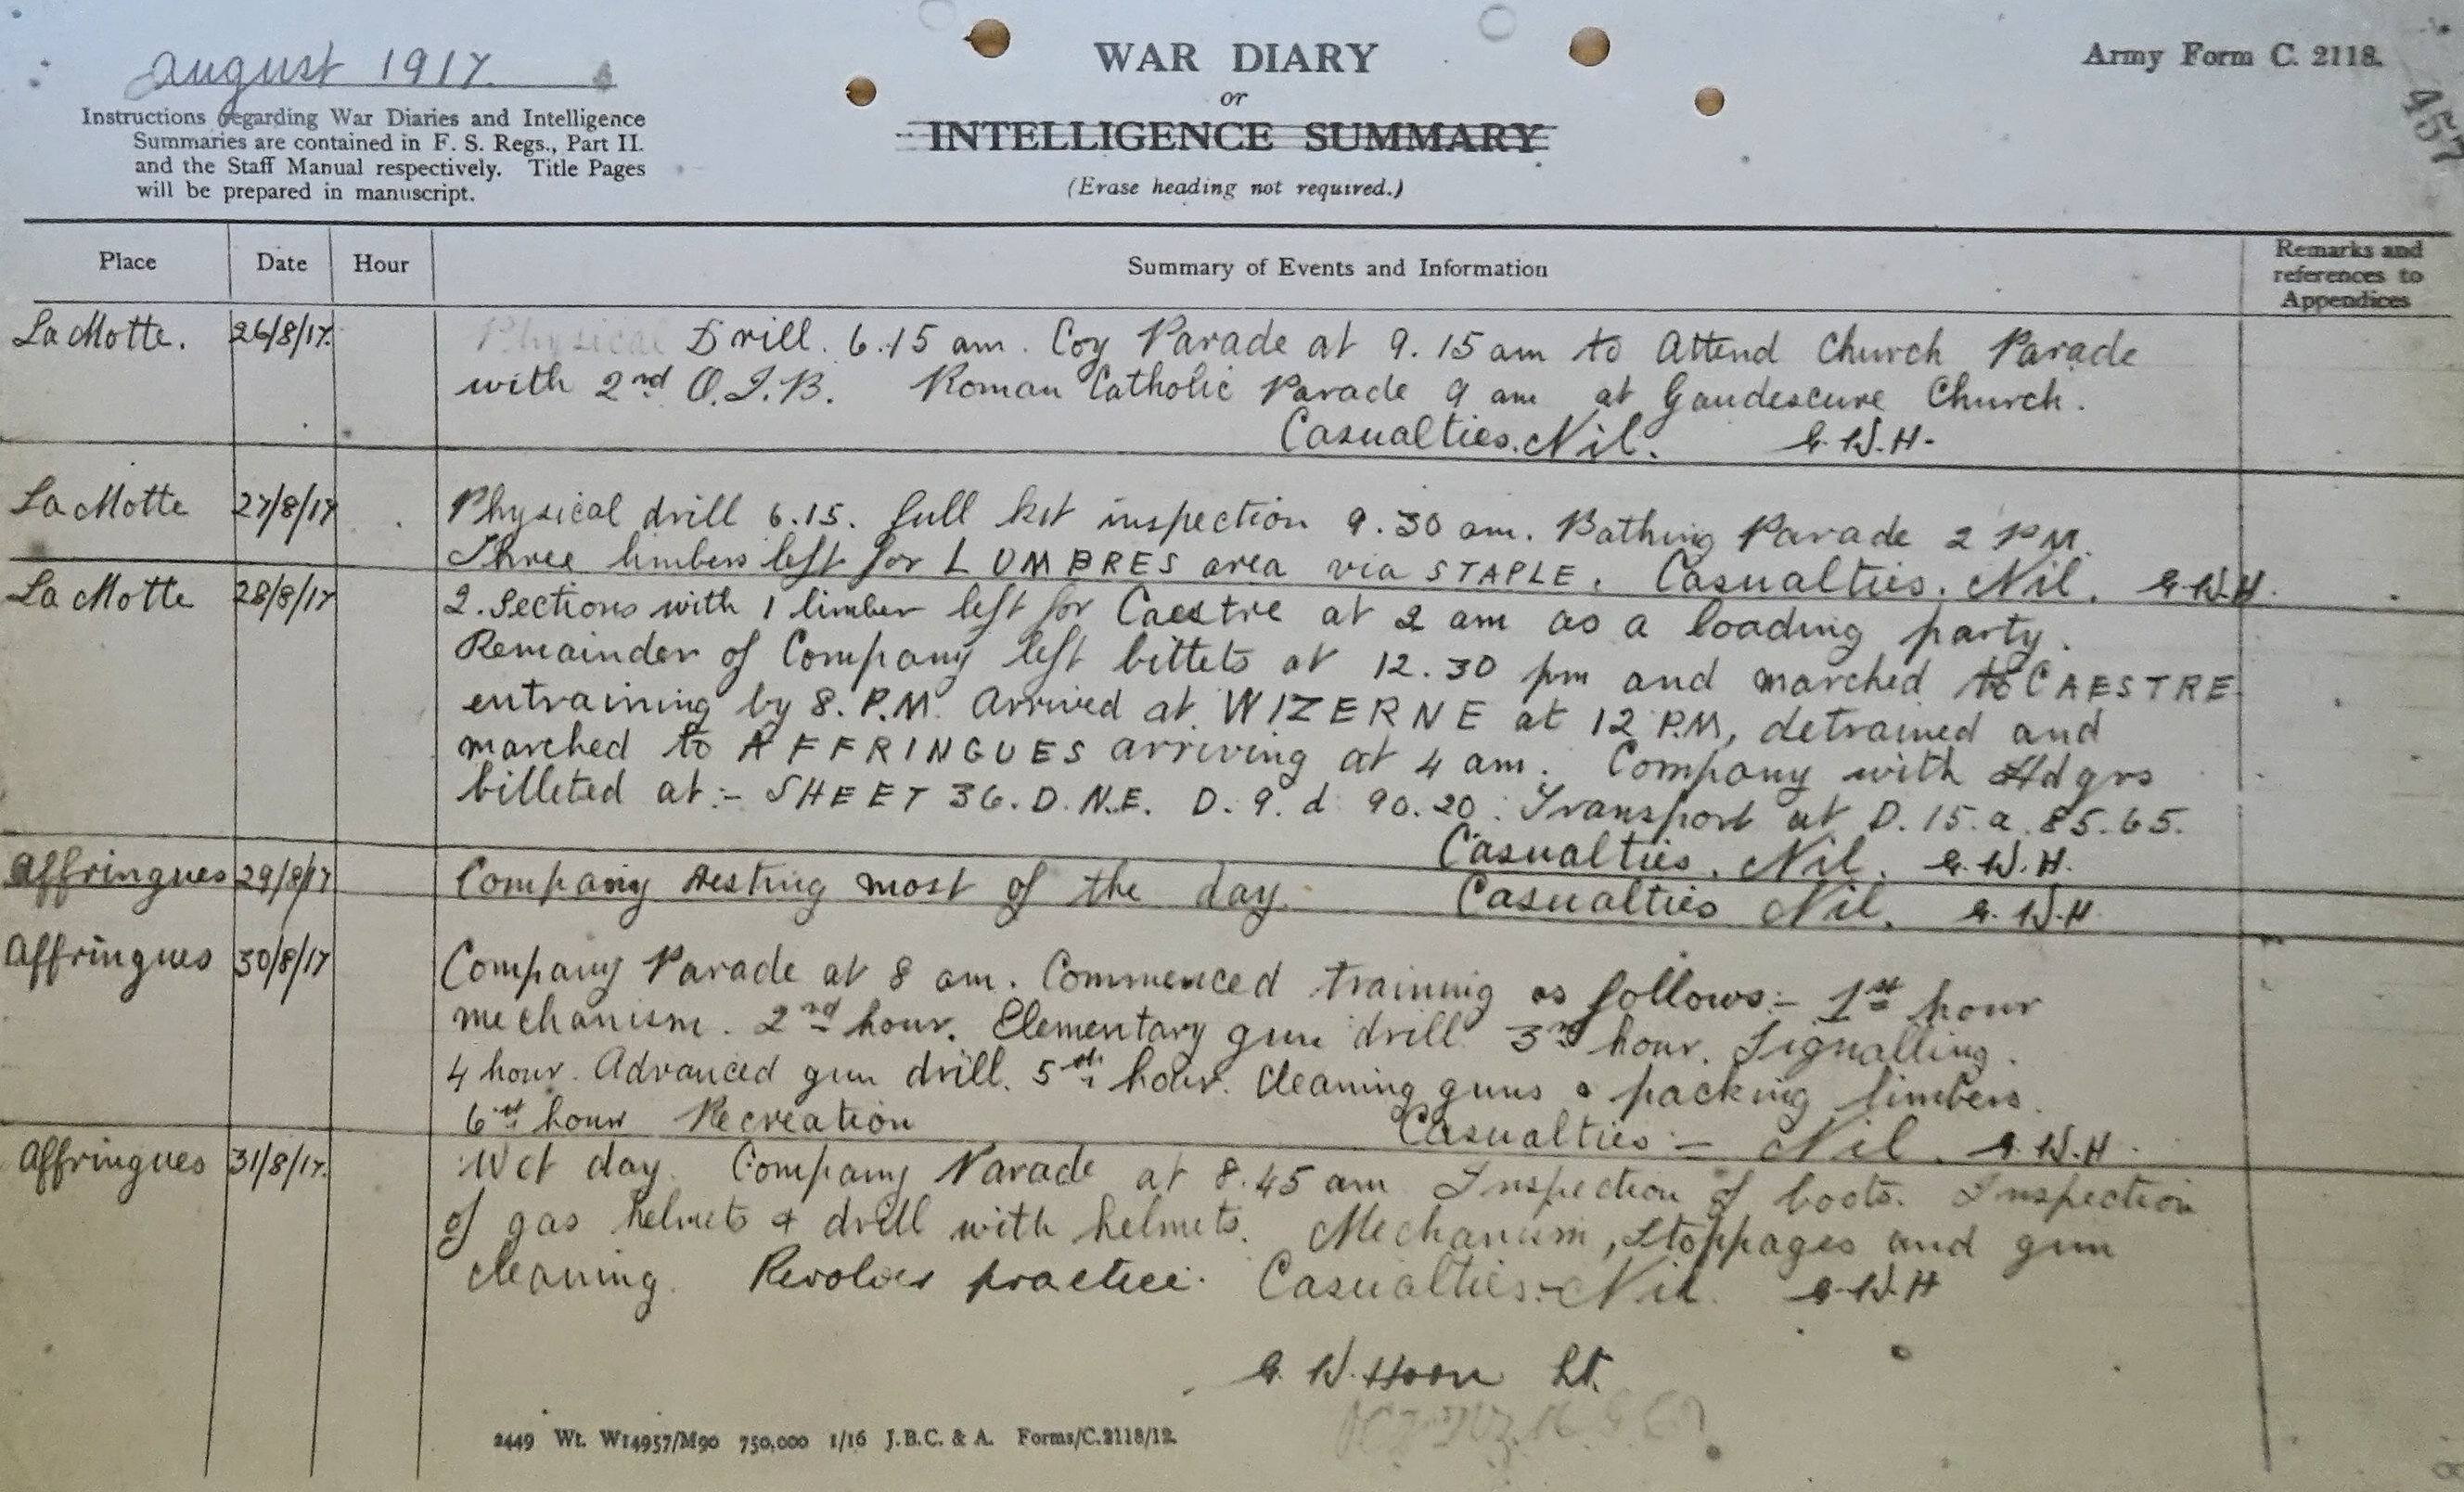 August 1917.
WAR DIARY
Army Form C. 2118.
or
457
Instructions regarding War Diaries and Intelligence
Summaries are contained in F. S. Regs., Part II.
and the Staff Manual respectively. Title Pages
will be prepared in manuscript.
INTELLIGENCE SUMMARY
(Erase heading not required.)
Place Date Hour Summary of Events and Information Remarks and
references to
Appendices
La Motte. 26/8/17. Physical Drill. 6.15 am. Coy Parade at 9.15 am to Attend Church Parade
with 2nd O.I.B. Roman Catholic Parade 9 am at Gaudescure Church.
Casualties. Nil. G.W.H.
La Motte 27/8/17 Physical drill 6.15. full kit inspection 9.30 am. Bathing Parade 2 PM.
Three limbers left for LUMBRES area via STAPLE. Casualties. Nil. G.W.H.
La Motte 28/8/17 2. Sections with 1 limber left for Caestre at 2 am as a loading party.
Remainder of Company left bittets at 12.30 pm and marched to CAESTRE
entraining by 8. P.M. Arrived at WIZERNE at 12 P.M, detrained and
marched to AFFRINGUES arriving at 4 am. Company with Hdqrs
billeted at:- SHEET 36.D.N.E. D.9.d 90.20. Transport at D.15.a.85.65.
Casualties. Nil. G.W.H.
Affringues 29/8/17 Company resting most of the day. Casualties Nil. G.W.H.
Affringues 30/8/17 Company Parade at 8 am. Commenced training as follows:- 1st hour
mechanism. 2nd hour. Elementary gun drill 3rd hour. Signalling.
4 hour. Advanced gun drill. 5th hour. Cleaning guns & packing limbers.
6th hour Recreation Casualties:- Nil. G.W.H.
Affringues 31/8/17. Wet day. Company Parade at 8.45 am Inspection of boots. Inspection
of gas helmets & drill with helmets. Mechanism, Stoppages and gun
cleaning. Revolver practice. Casualties:- Nil. G.W.H
G.W. Hoon Lt.
2449 Wt. W14957/M90 750,000 1/16 J.B.C. & A. Forms/C.2118/12.